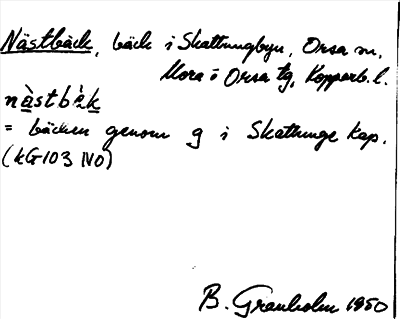 Nästbäck, bäck i Skattungbyn, Orsa sn.
Mora o Orsa tg, Kopparb. l.
nàstbèk
= bäcken genom g i Skattunge kap.
(kG103 NO)
B. Granholm 1950